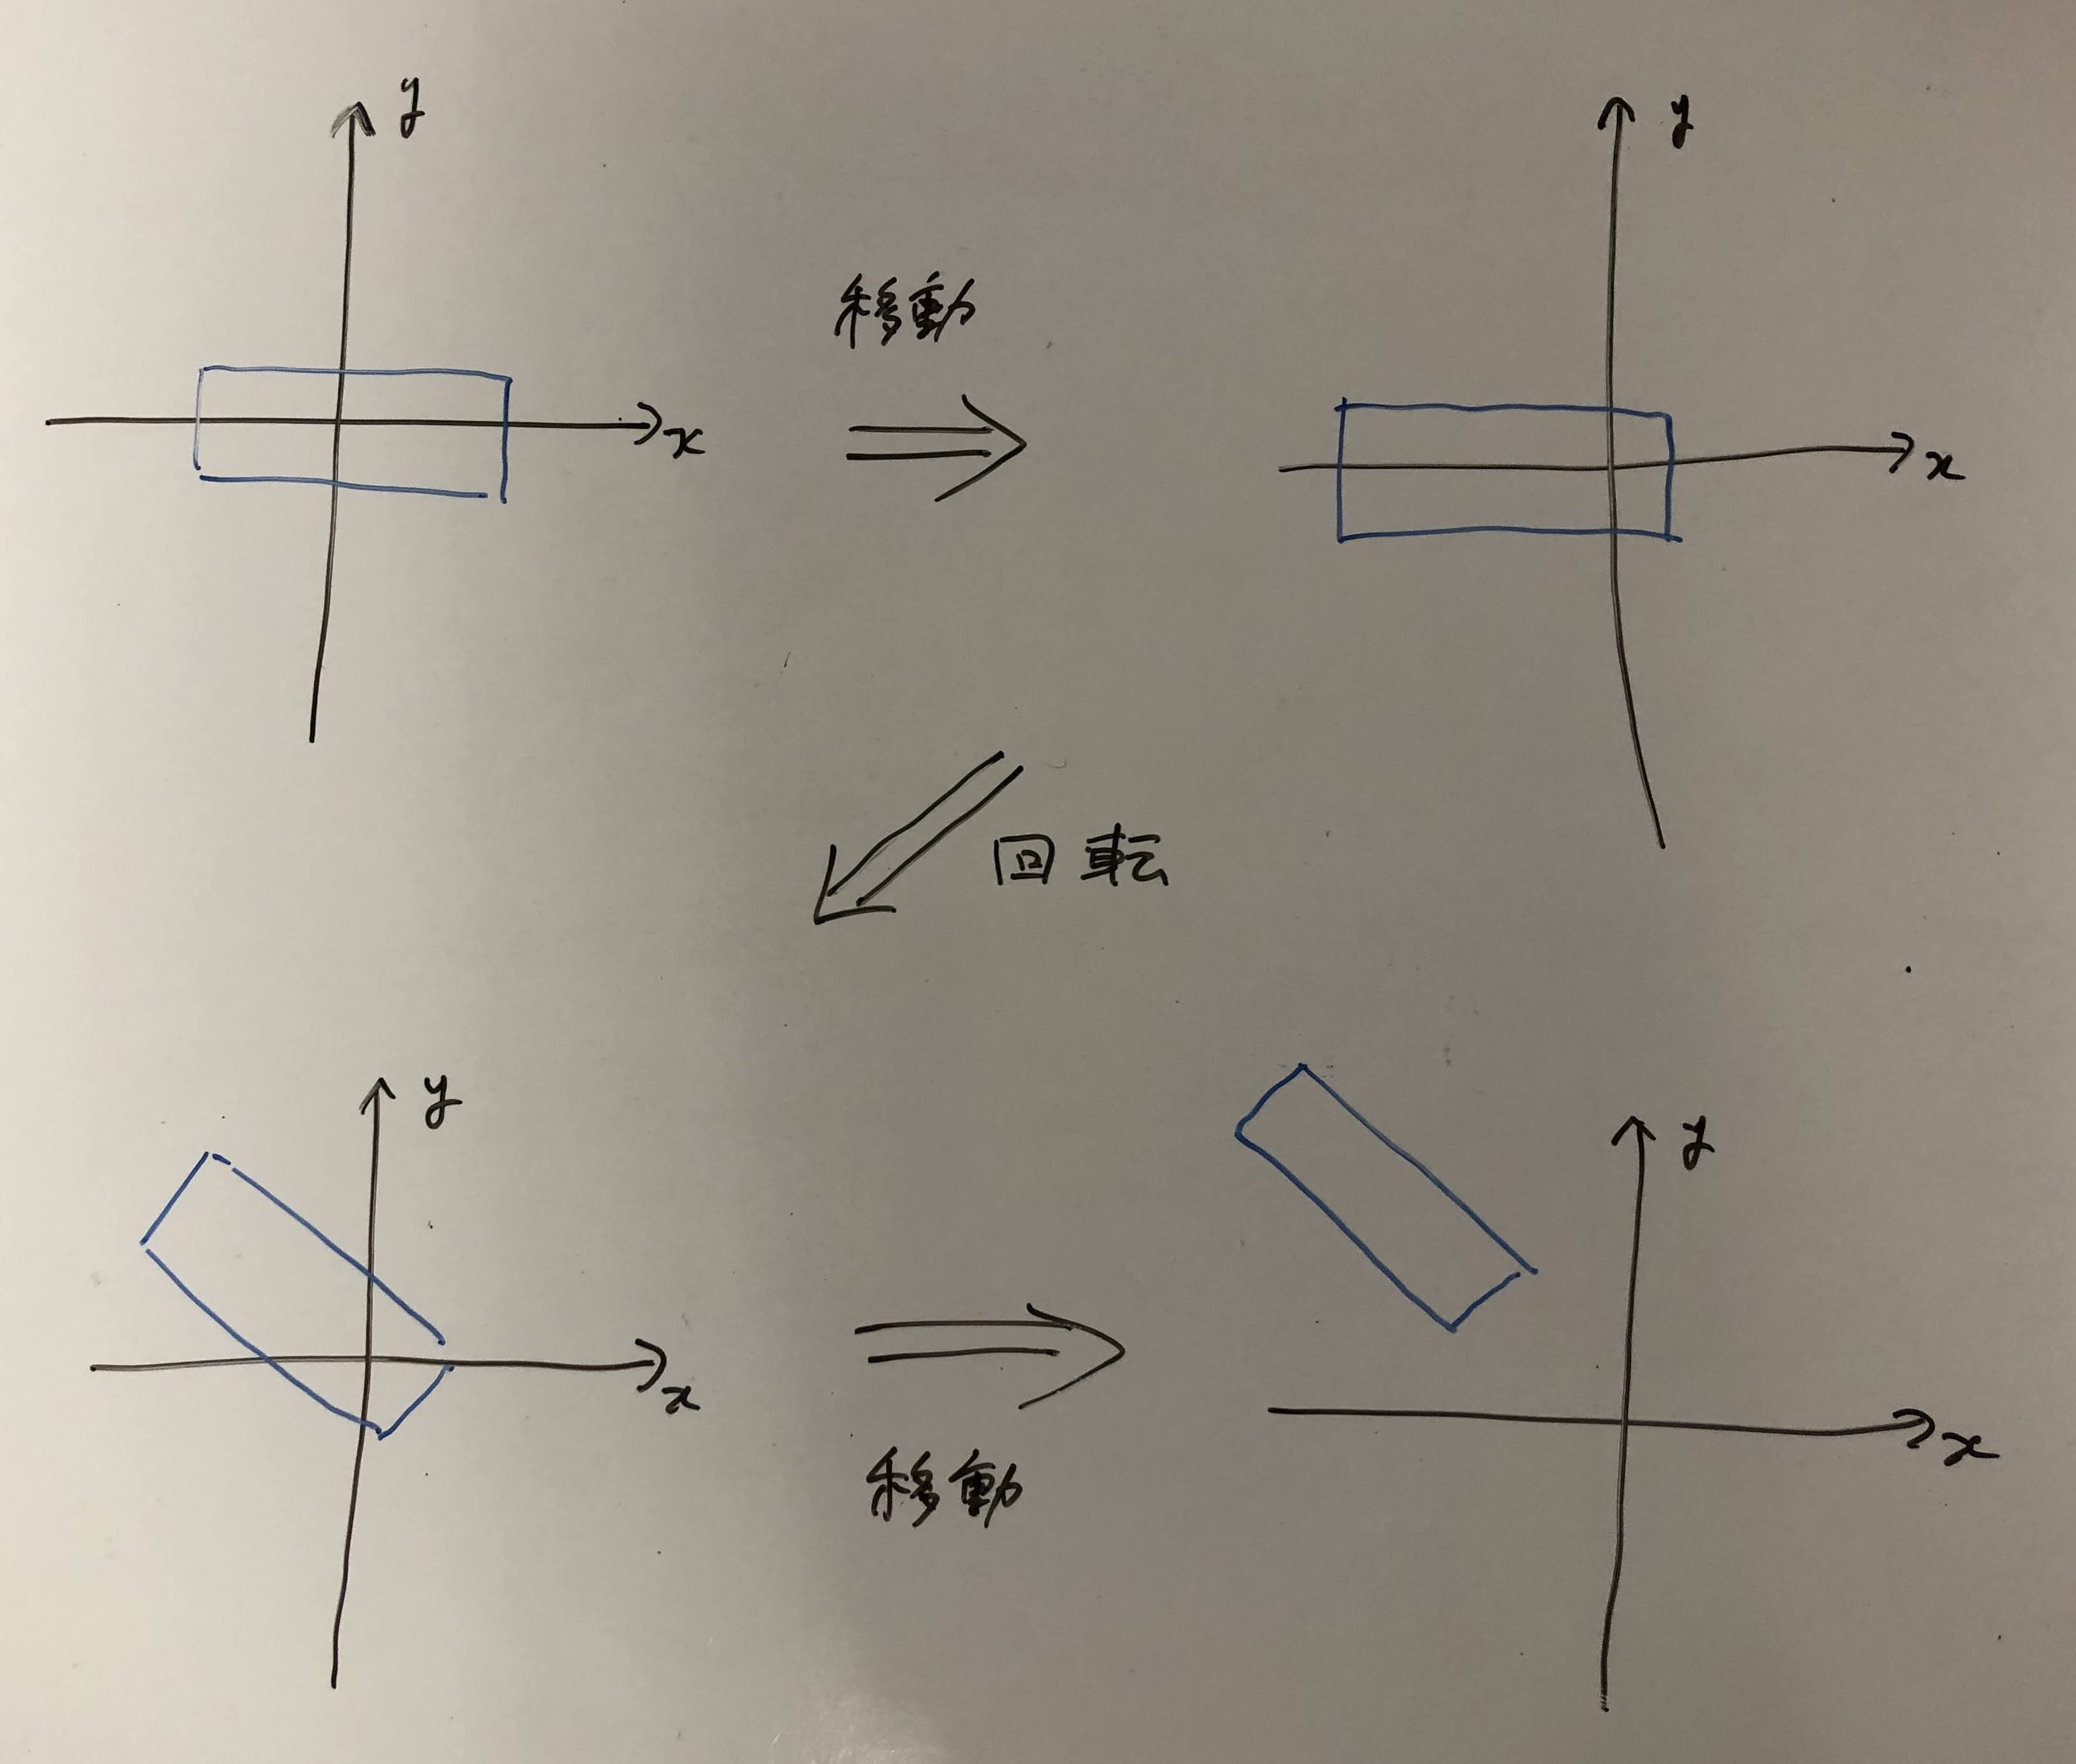 y
x
移動
y
x
回転
y
x
移動
y
x